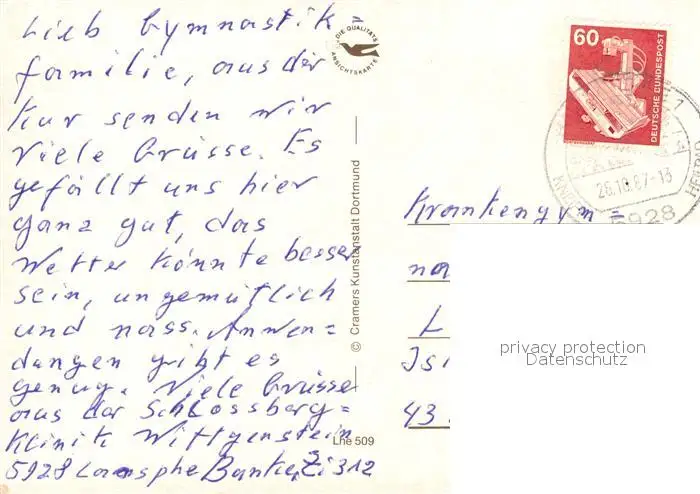 Lieb Gymnastik=
familie, aus der
Kur senden wir
viele Grüsse. Es
gefällt uns hier
ganz gut, das
Wetter könnte besser
sein, ungemütlich
und nass. Anwen=
dungen gibt es
genug. Viele Grüsse
aus der Schlossberg=
Klinik Wittgenstein
5928 Laasphe Zi 312
DIE QUALITÄTS
ANSICHTSKARTE
© Cramers Kunstanstalt Dortmund
Lhe 509
60
DEUTSCHE BUNDESPOST
26.10.87-13
5928
Krankengym=
na
L
Isi
43
privacy protection
Datenschutz